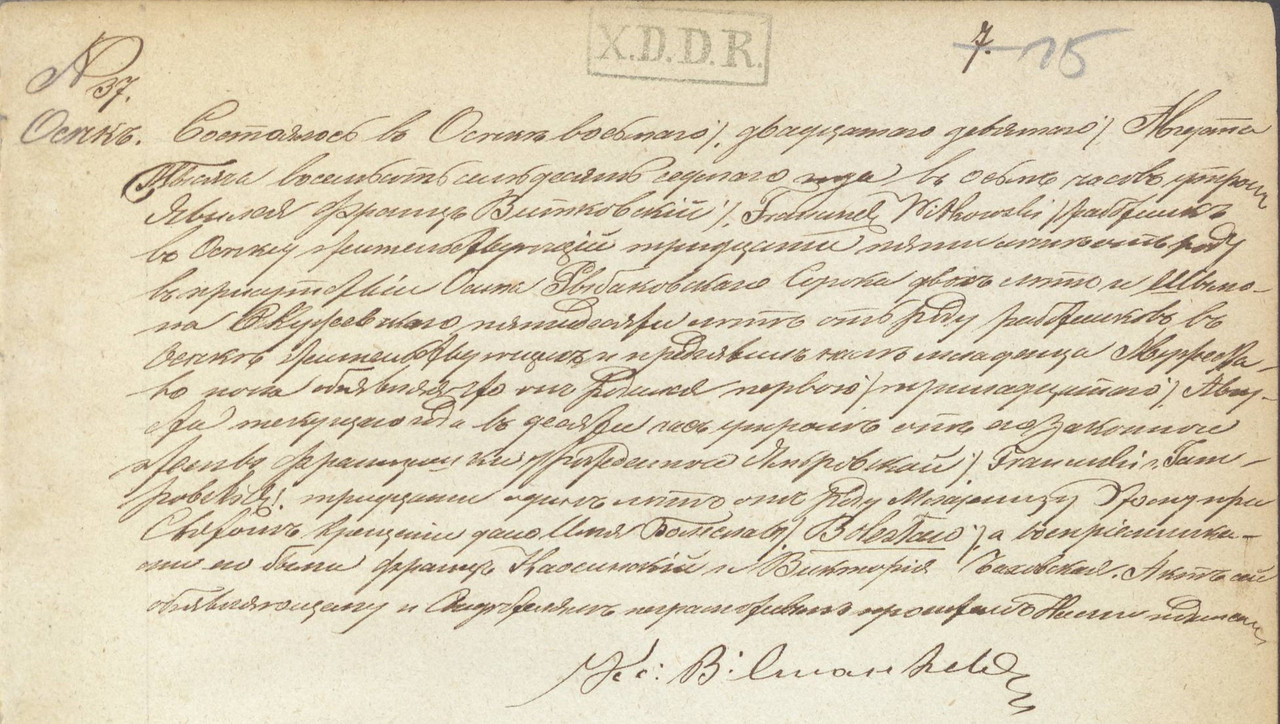 X.D.D.R.
7. 15
N 37.
Осѣкъ. Состоялось въ Осѣкѣ восьмаго /, двадцатаго девятаго / Августа
Тысяча восемьсотъ семьдесятъ седмаго года въ осьмъ часовъ утромъ
Явился Францъ Витковскій /, Franciszek Witkowski / работникъ
въ Осѣку жительствующій тридцати пяти лѣтъ отъ роду
въ присутствіи Осипа Рыбаковскаго Сорока двохъ лѣтъ и Шымо-
на пятидесяти лѣтъ отъ роду работниковъ въ
Осѣкѣ жительствующихъ и предъявилъ намъ младенца Мужеска-
го пола объявляя что онъ родился перваго / тринадцатаго / Авгу-
ста текущаго года въ десяти часъ утромъ отъ его Законной
жены Францишки урожденной Ямбровской /
тридцати одинъ лѣтъ отъ роду Младенцу этому при
Святомъ крещеніи дано Имя Болеслав / Bolesław /, а воспріемника-
ми его были Францъ и Викторія Актъ сей
объявляющему и Свидѣтелямъ неграмотнымъ прочтенъ Нами подписанъ